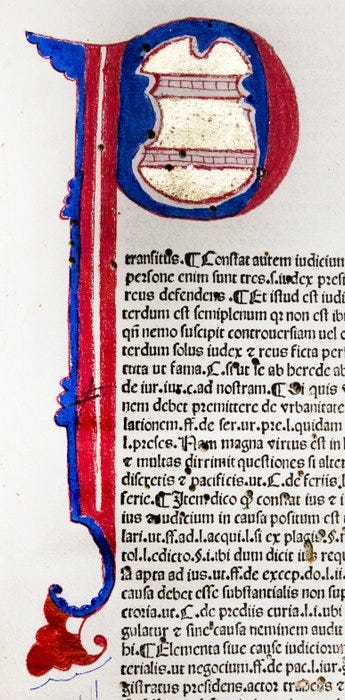 P
ransitus. ¶ Constat autem iudicium
persone enim sunt tres. s. iudex presi
reus defendens. ¶ Et istud est iudi
terdum est semiplenum qr non est ibi
qñ nemo suscipit controuersiam uel c
terdum solus iudex ⁊ reus ficta per
tuta ut fama. C. si ut se ab herede ab
de iur. iur. c. ad nostram. ¶ Si quis v
nem debet premittere de vrbanitate
lationem. ff. de ser. ur. pre. l. quidam
l. preses. Nam magna virtus est in h
⁊ multas dirimit questiones si alter
discretis ⁊ pacificis. ut. C. de feriis. l.
ferie. ¶ Item dico ꝙ constat ius ⁊ i
ius audicium in causa positum est
lari. ut. ff. ad. l. acqui. l. si ex plagis. §.
tol. l. edicto. §. i. ibi dum dicit ius
A apta ad ius. ut. ff. de excep. do. l. ii.
causa debet esse substantialis non sup
ctoria. ut. C. de prediis curia. l. i. ubi
gulatur ⁊ sine causa neminem audit
bi. ¶ Elementa siue cause iudiciorum
terialis. ut negocium. ff. de pac. l. iur. §
gistratus presidens. actor